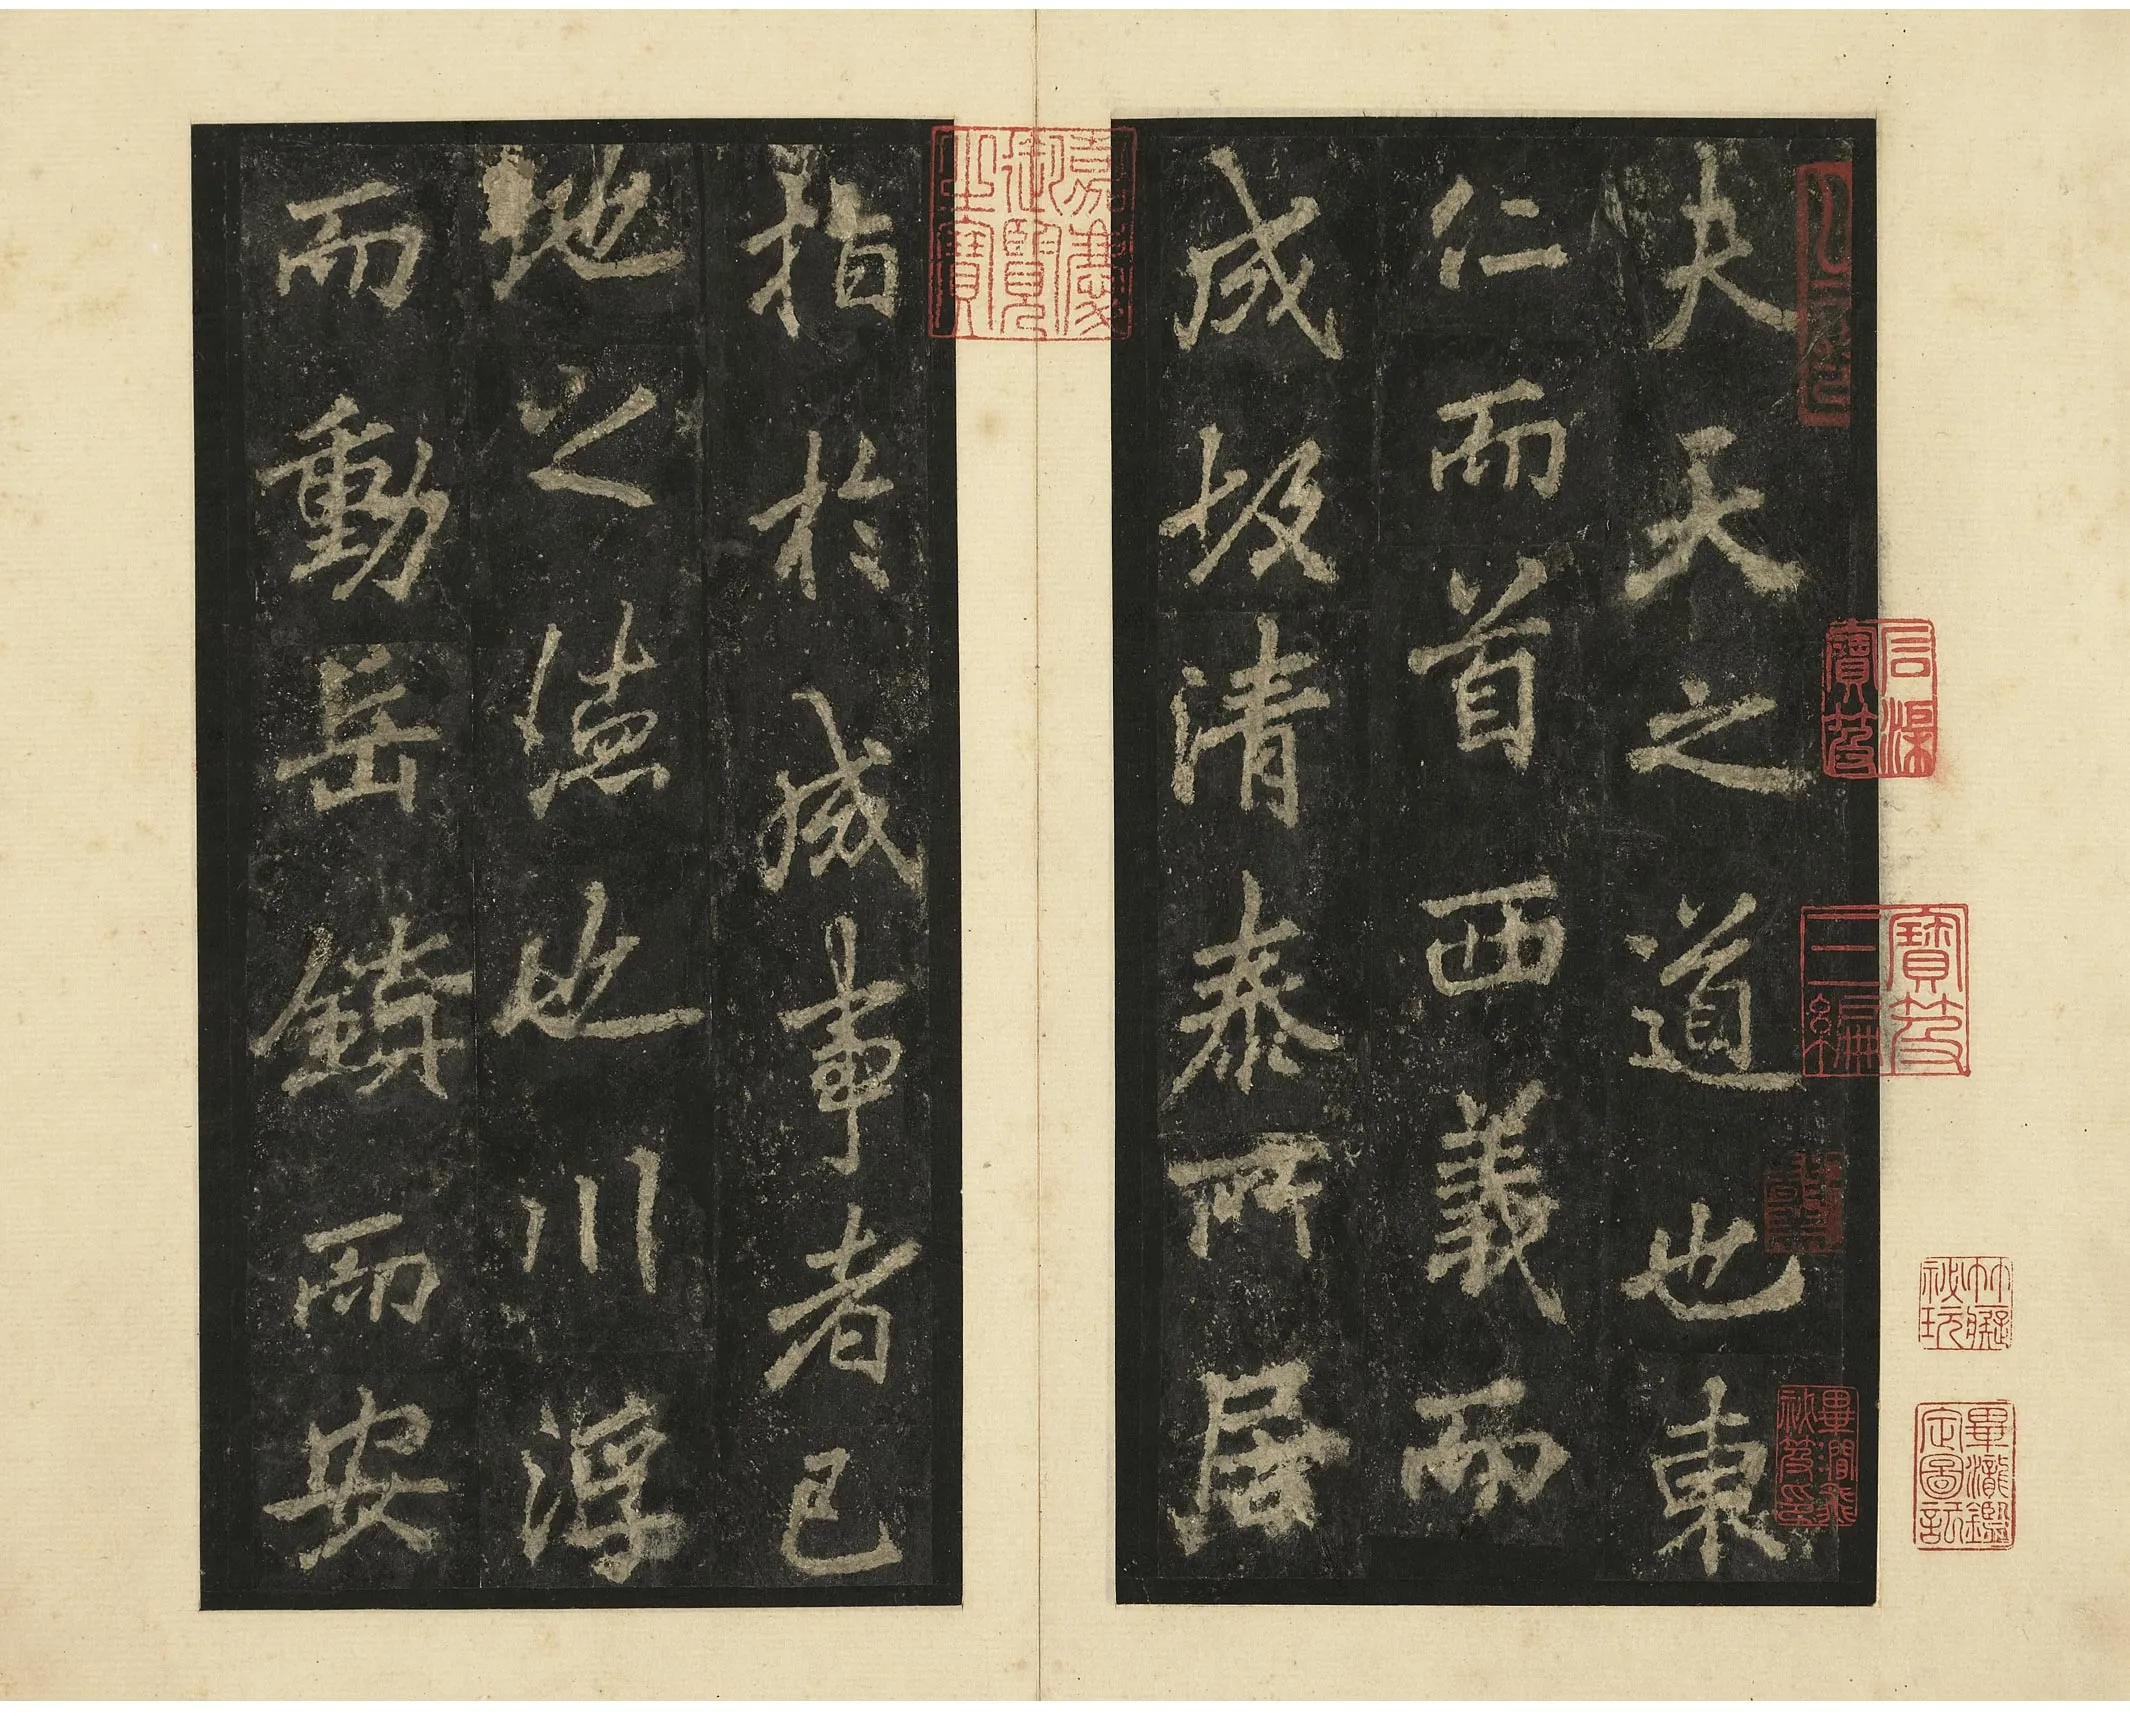 夫天之道也東
仁而首西義而
成故清泰所居
指於事者已
地之德也川浮
而動岳鎮而安
嘉慶御覽之寶
石渠寶笈
寶笈三編
畢澗飛秘笈印
竹癡秘玩
畢瀧鑑定圖記